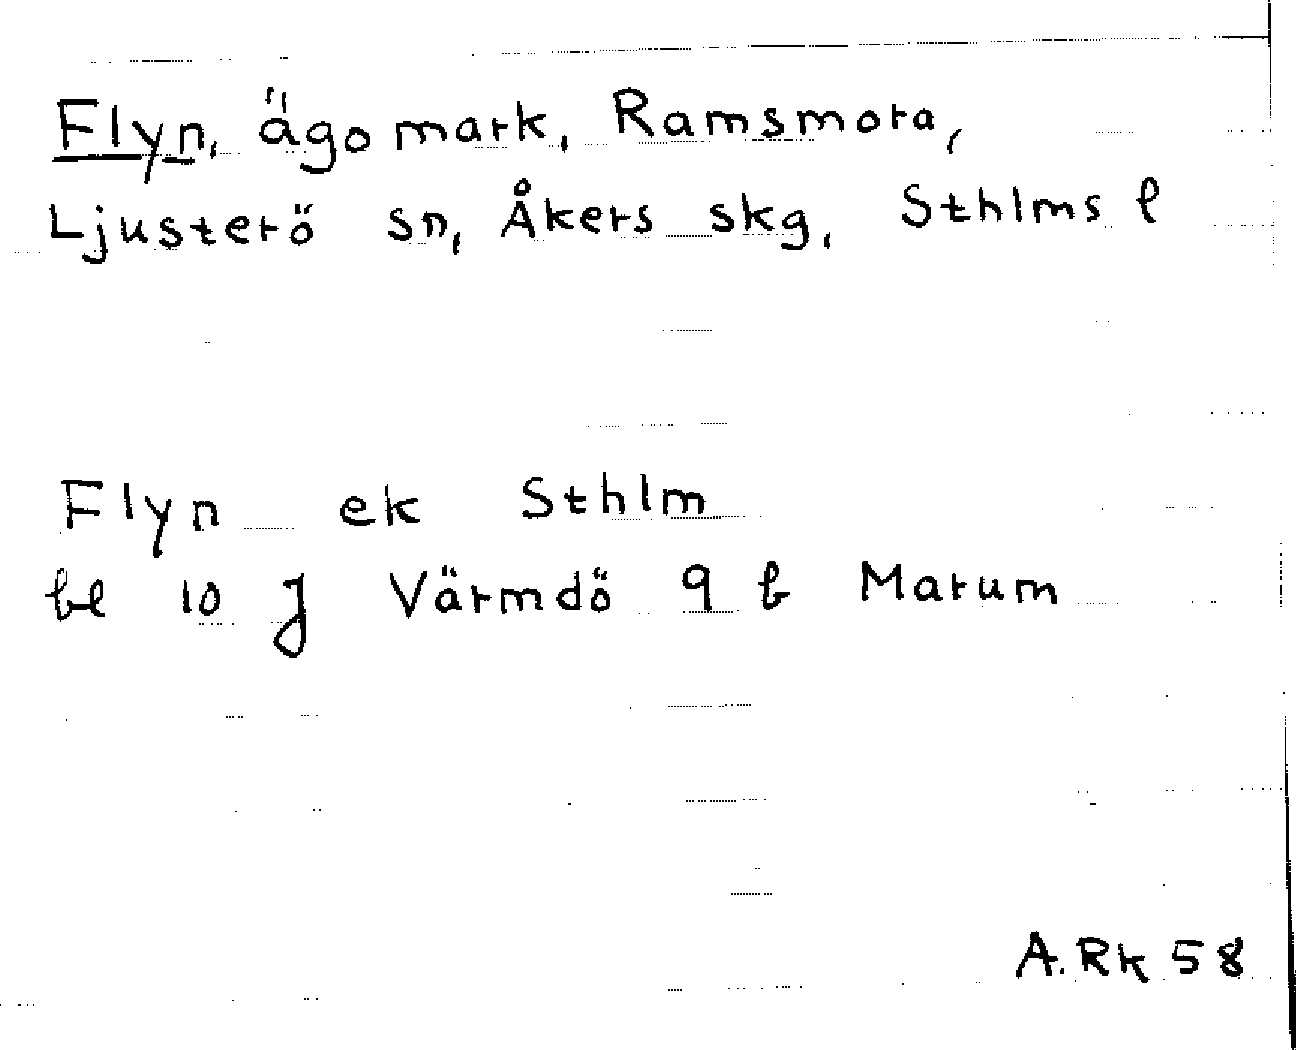 Flyn, ägomark, Ramsmora,
Ljusterö sn, Åkers skg, Sthlms l
Flyn ek Sthlm
bl 10 J Värmdö 9 b Marum
A. Rk 58